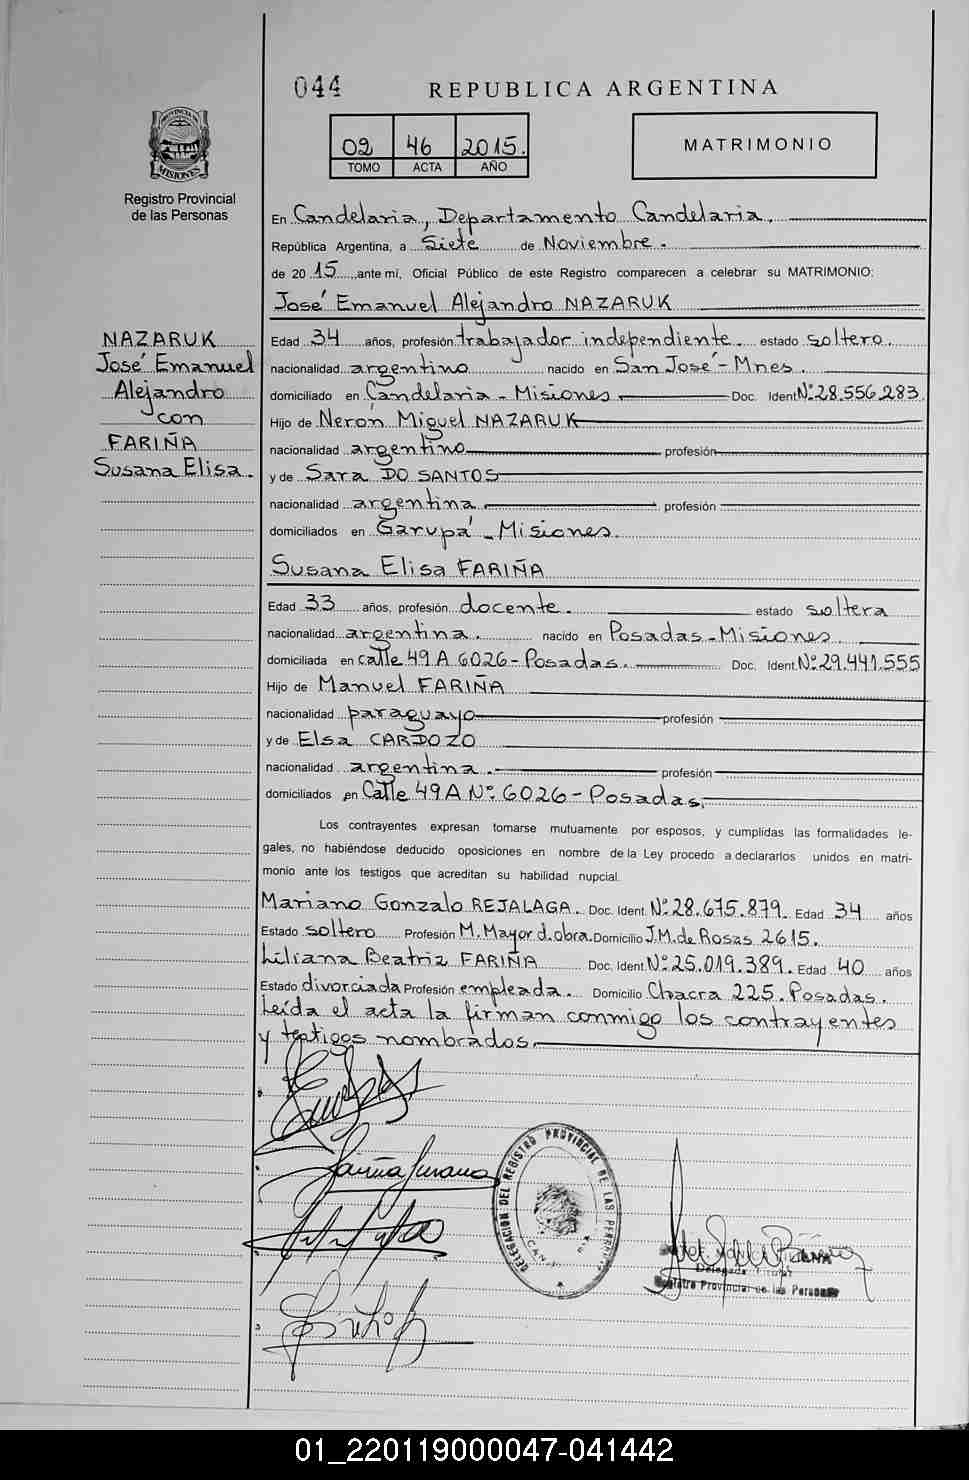 044 REPUBLICA ARGENTINA
PROVINCIA DE
MISIONES
Registro Provincial
de las Personas
02 46 2015.
TOMO ACTA AÑO
MATRIMONIO
En Candelaria, Departamento Candelaria.
República Argentina, a Siete de Noviembre.
de 20 15 ante mí, Oficial Público de este Registro comparecen a celebrar su MATRIMONIO:
José Emanuel Alejandro NAZARUK
NAZARUK
José Emanuel
Alejandro
con
FARIÑA
Susana Elisa.
Edad 34 años, profesión trabajador independiente. estado soltero.
nacionalidad argentino nacido en San José - Mnes.
domiciliado en Candelaria - Misiones Doc. Ident. Nº 28.556.283
Hijo de Nerón Miguel NAZARUK
nacionalidad argentino profesión
y de Sara DO SANTOS
nacionalidad argentina profesión
domiciliados en Garupá - Misiones.
Susana Elisa FARIÑA
Edad 33 años, profesión docente. estado soltera
nacionalidad argentina. nacido en Posadas - Misiones.
domiciliada en calle 49 A 6026 - Posadas. Doc. Ident. Nº 29.441.555
Hijo de Manuel FARIÑA
nacionalidad paraguayo profesión
y de Elsa CARDOZO
nacionalidad argentina. profesión
domiciliados en Calle 49 A Nº 6026 - Posadas.
Los contrayentes expresan tomarse mutuamente por esposos, y cumplidas las formalidades le-
gales, no habiéndose deducido oposiciones en nombre de la Ley procedo a declararlos unidos en matri-
monio ante los testigos que acreditan su habilidad nupcial.
Mariano Gonzalo REJALAGA. Doc. Ident. Nº 28.675.879. Edad 34 años
Estado soltero Profesión M. Mayor d. obra. Domicilio J.M. de Rosas 2615.
Liliana Beatriz FARIÑA Doc. Ident. Nº 25.019.389. Edad 40 años
Estado divorciada Profesión empleada. Domicilio Chacra 225. Posadas.
Leída el acta la firman conmigo los contrayentes
y testigos nombrados.
Fariña Susana
DELEGACION DEL REGISTRO PROVINCIAL DE LAS PERSONAS
Delegada Titular
Registro Provincial de las Personas
01_220119000047-041442